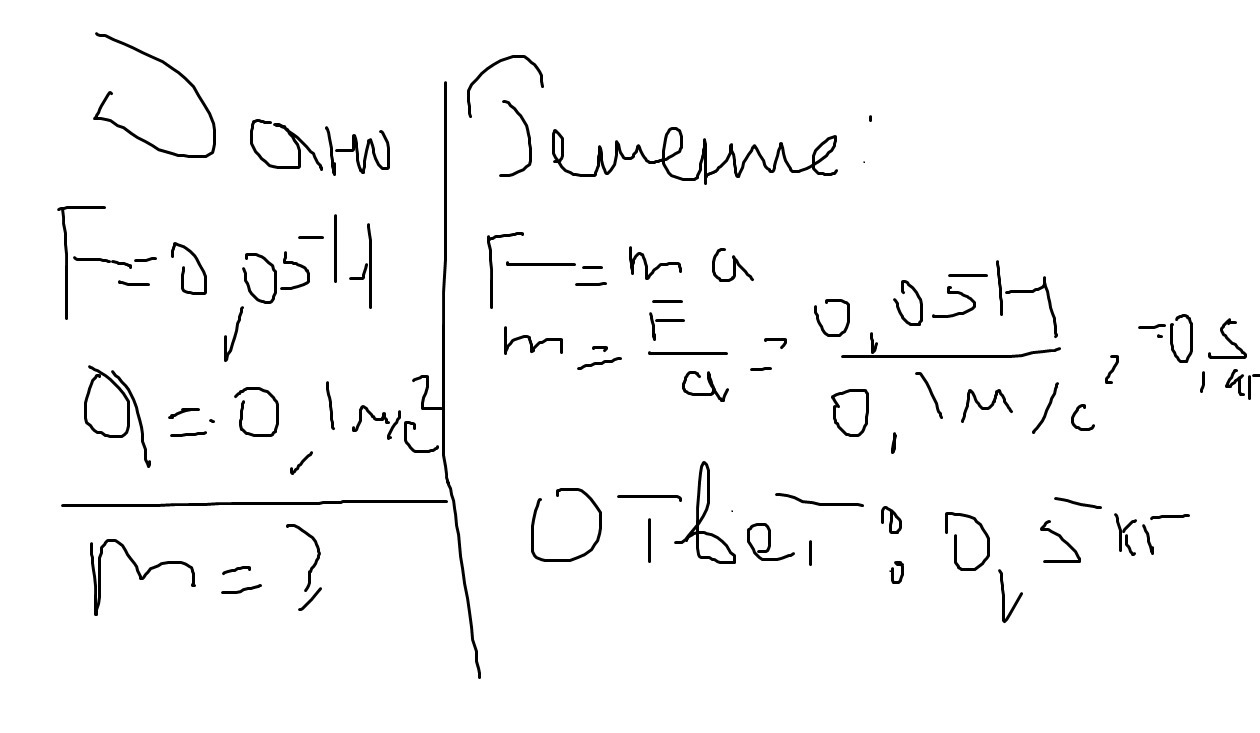 Дано
F=0,05Н
a=0,1м/с²
m=?
Решение:
F=ma
m=F/a=0,05Н/0,1м/с²=0,5кг
Ответ: 0,5кг